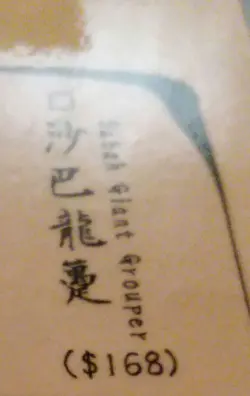 沙巴龍躉
Sabah Giant Grouper
($168)